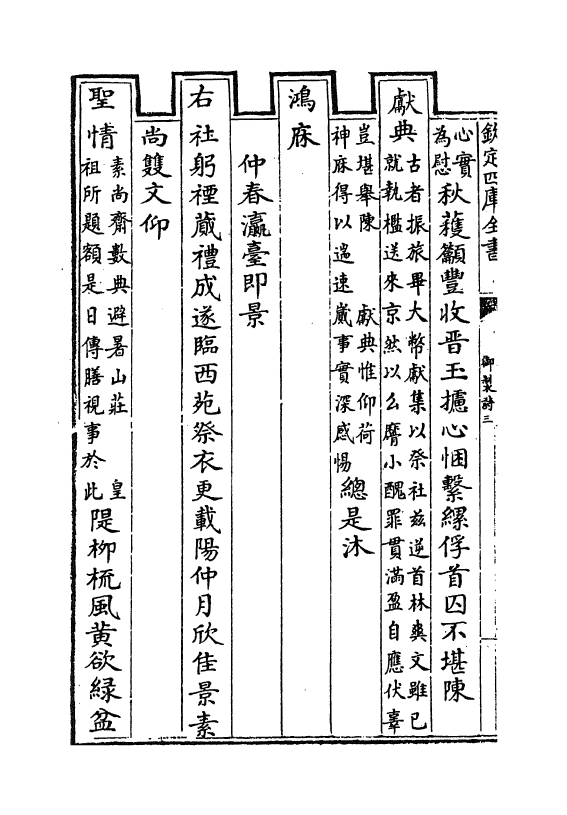 欽定四庫全書
御製詩三
心實
為慰
秋穫籲豐收晋玉攄心悃繫縲俘首囚不堪陳
獻典
古者振旅畢大幣獻集以祭社兹逆首林爽文雖已
就執檻送來京然以么䯢小醜罪貫滿盈自應伏辜
豈堪舉陳　獻典惟仰荷
神庥得以遄速蕆事實深感惕
總是沐
鴻庥
仲春瀛臺即景
右社躬禋蕆禮成遂臨西苑祭衣更載陽仲月欣佳景素
尚雙文仰
聖情
素尚齋數典避暑山莊　皇
祖所題額是日傳膳視事於此
隄柳梳風黄欲緑盆